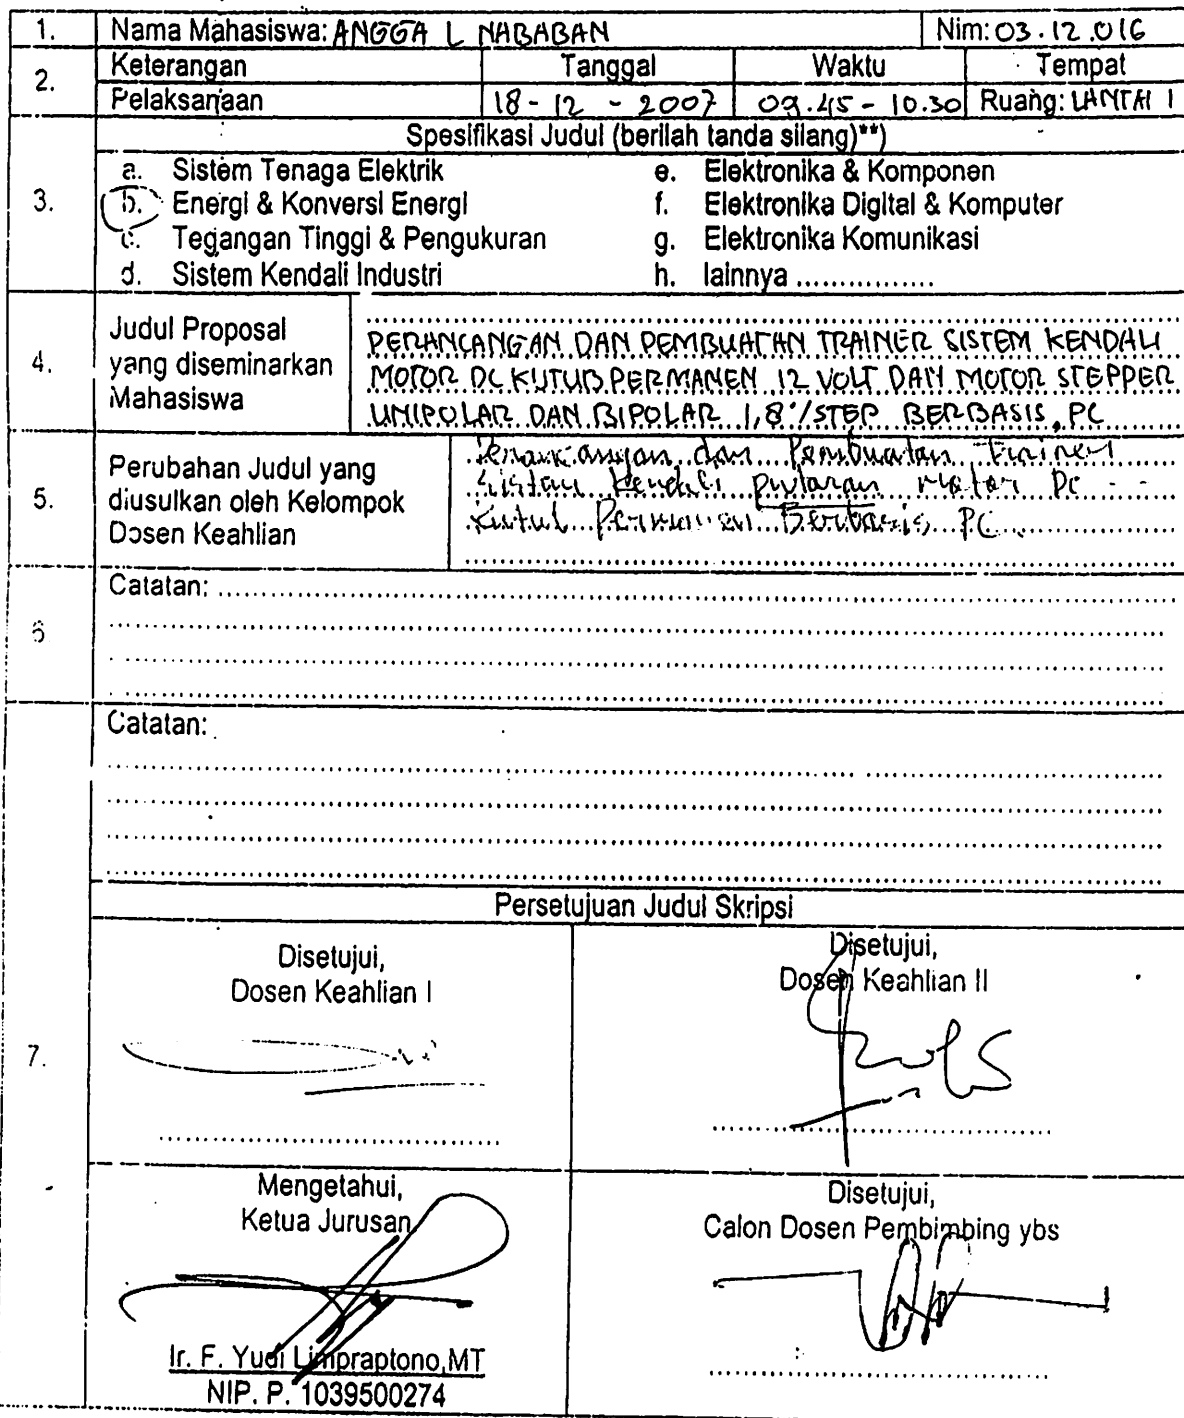 1. Nama Mahasiswa: ANGGA L NABABAN Nim: 03.12.016
2. Keterangan Tanggal Waktu Tempat
Pelaksanaan 18-12-2007 09.45-10.30 Ruang: LANTAI 1
Spesifikasi Judul (berilah tanda silang)**)
3.
a. Sistem Tenaga Elektrik e. Elektronika & Komponen
b. Energi & Konversi Energi f. Elektronika Digital & Komputer
c. Tegangan Tinggi & Pengukuran g. Elektronika Komunikasi
d. Sistem Kendali Industri h. lainnya ................
4. Judul Proposal
yang diseminarkan
Mahasiswa
PERANCANGAN DAN PEMBUATAN TRAINER SISTEM KENDALI
MOTOR DC KUTUB PERMANEN 12 VOLT DAN MOTOR STEPPER
UNIPOLAR DAN BIPOLAR 1,8°/STEP BERBASIS PC
5. Perubahan Judul yang
diusulkan oleh Kelompok
Dosen Keahlian
Perancangan dan Pembuatan Trainer
Sistem Kendali putaran motor DC
Kutub Permanen Berbasis PC
6 Catatan:
Catatan:
Persetujuan Judul Skripsi
7.
Disetujui,
Dosen Keahlian I
Disetujui,
Dosen Keahlian II
Mengetahui,
Ketua Jurusan
Ir. F. Yudi Limpraptono,MT
NIP. P. 1039500274
Disetujui,
Calon Dosen Pembimbing ybs